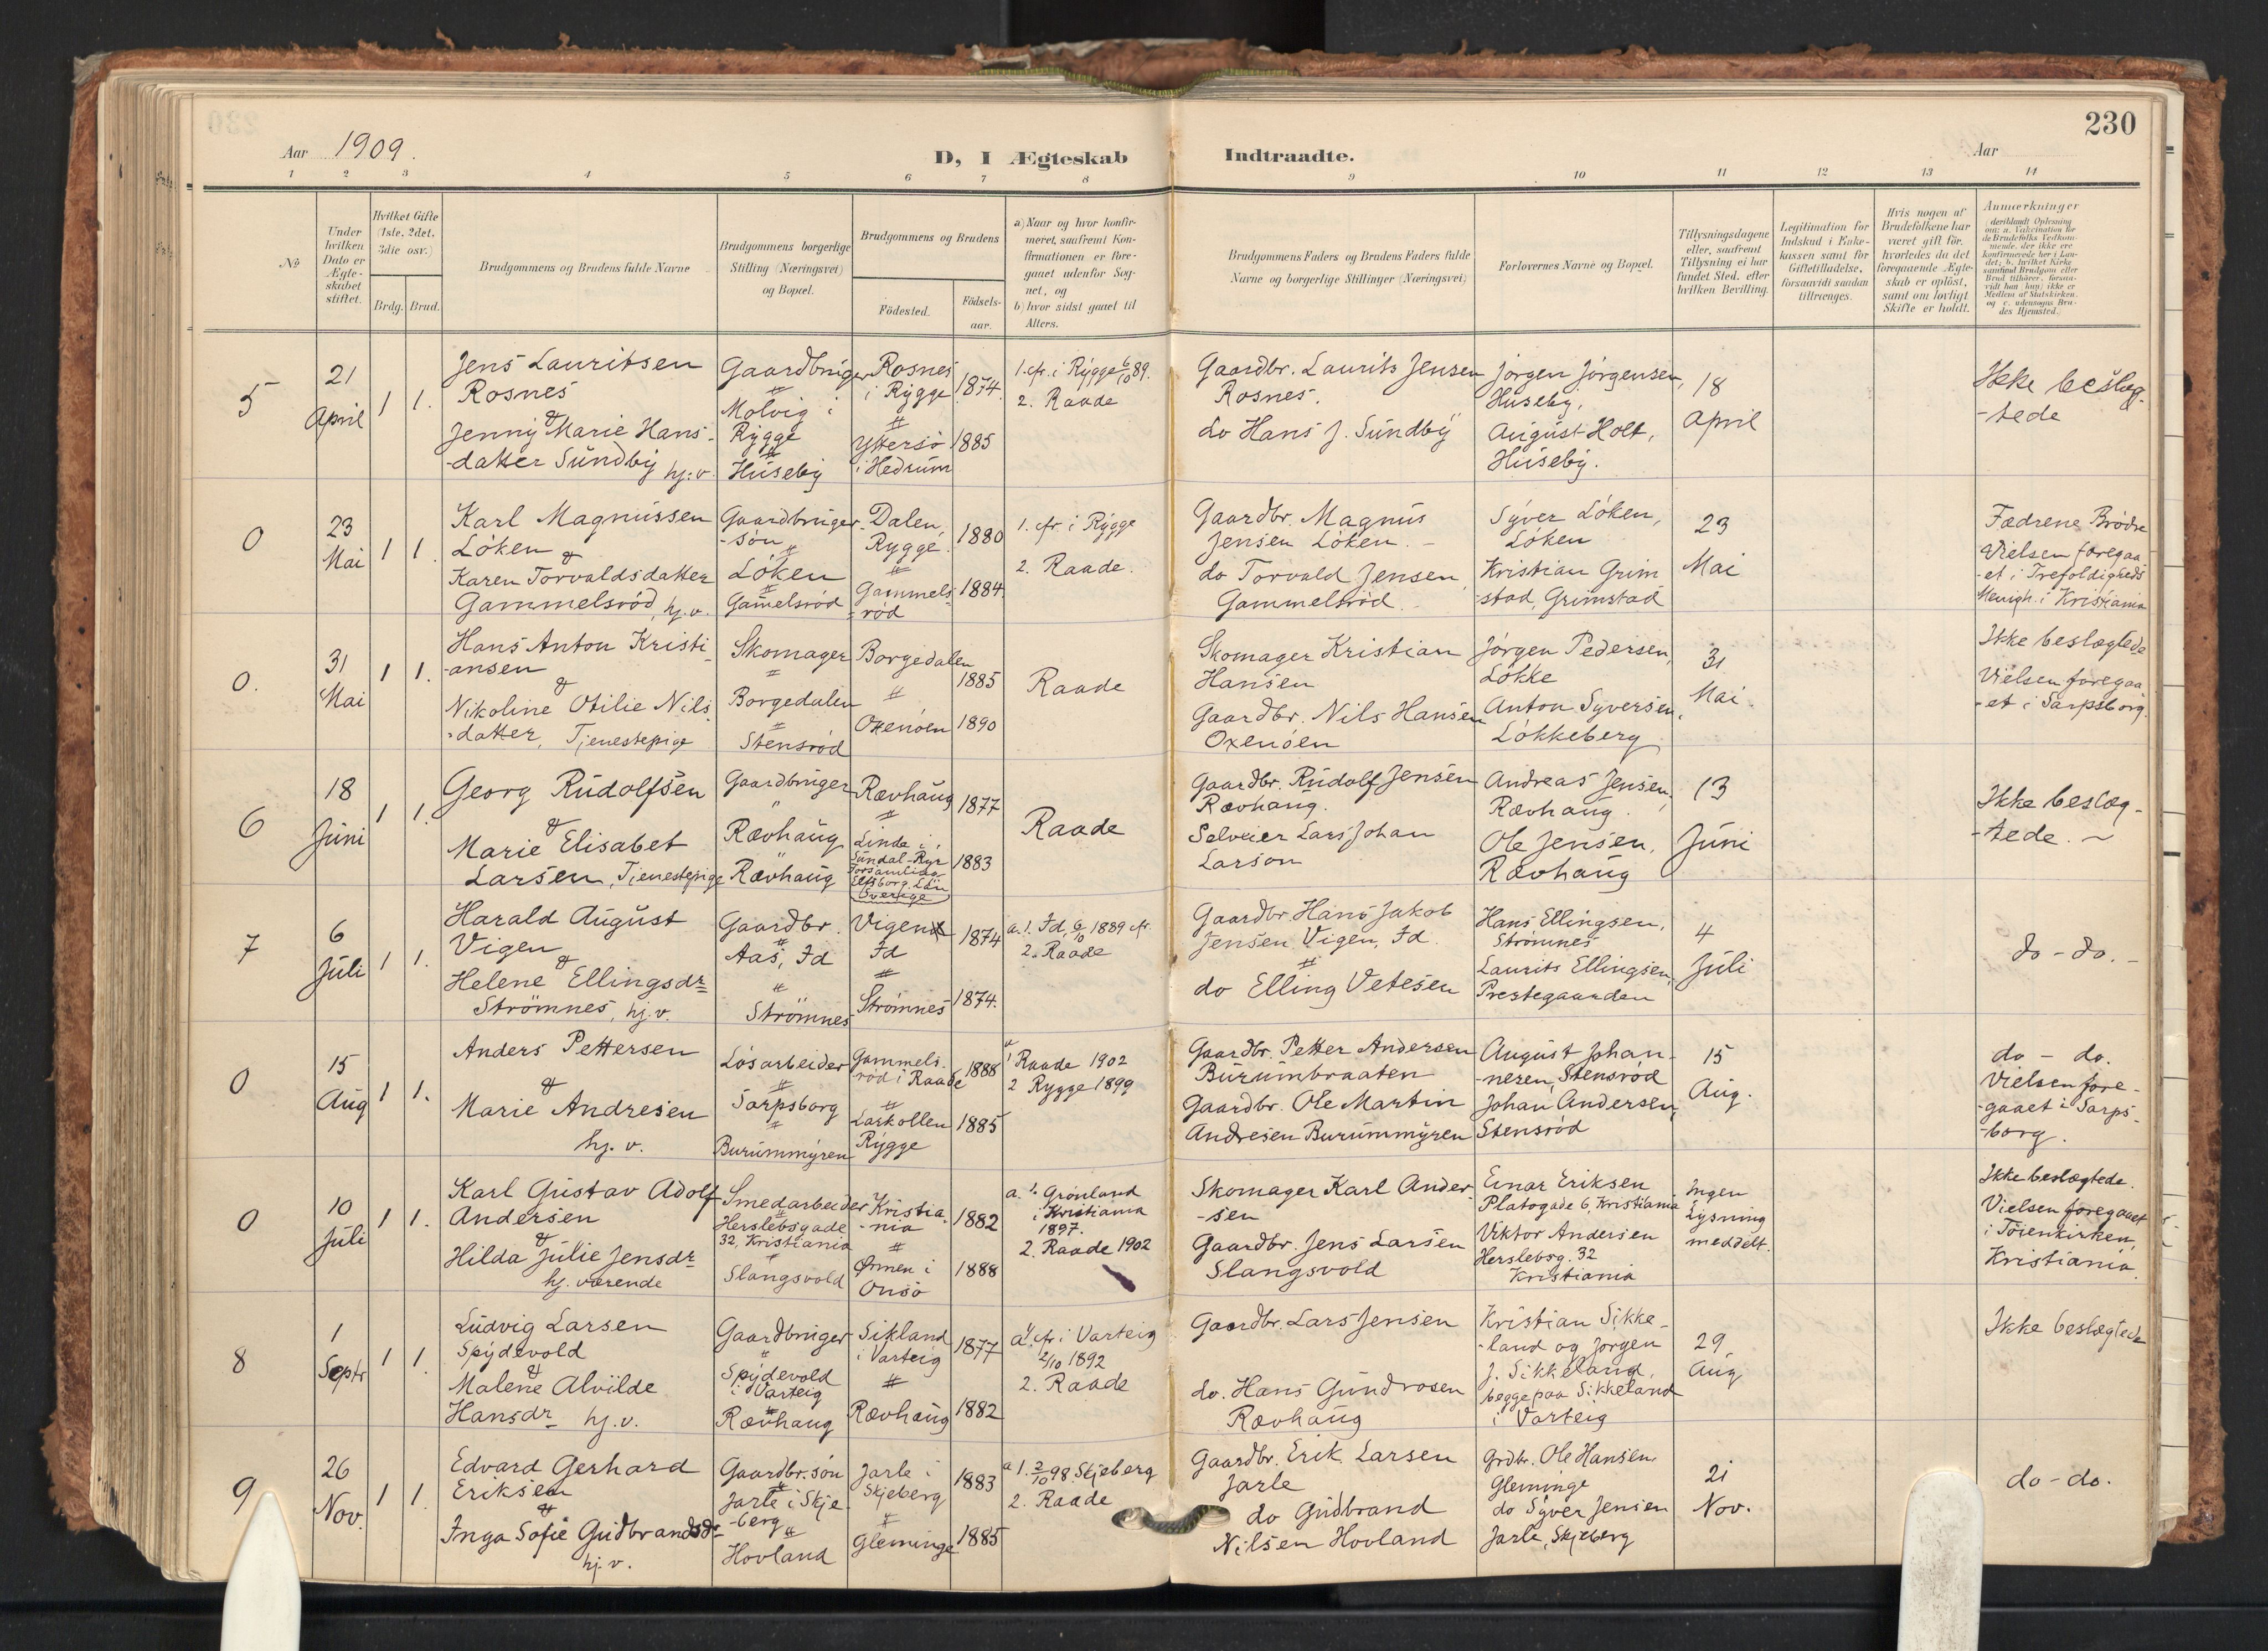 230
Aar 1909.
D, I Ægteskab Indtraadte.
Aar
1 2 3 4 5 6 7 8 9 10 11 12 13 14
No
Under hvilken Dato er Ægteskabet stiftet.
Hvilket Gifte (1ste, 2det, 3die osv.)
Brdg. Brud.
Brudgommens og Brudens fulde Navne
Brudgommens borgerlige Stilling (Næringsvei) og Bopæl.
Brudgommens og Brudens
Födested.
Födselsaar.
a) Naar og hvor konfirmeret, saafremt Konfirmationen er foregaaet udenfor Sognet, og
b) hvor sidst gaaet til Alters.
Brudgommens Faders og Brudens Faders fulde Navne og borgerlige Stillinger (Næringsvei)
Forlovernes Navne og Bopæl.
Tillysningsdagene eller, saafremt Tillysning ei har fundet Sted, efter hvilken Bevilling.
Legitimation for Indskud i Enkekassen samt for Giftetilladelse, forsaavidt saadan tiltrænges.
Hvis nogen af Brudefolkene har været gift før, hvorledes da det foregaaende Ægteskab er oplöst, samt om lovligt Skifte er holdt.
Anmærkninger
5
21
April
1 1.
Jens Lauritsen
Rosnes
&
Jenny Marie Hans-
-datter Sundby hj.v.
Gaardbruger
Molvig i
Rygge
Huseby
Rosnes
i Rygge
Yttersö
i Hedrum
1874.
1885
1. cfr. i Rygge 6/10 89.
2. Raade
Gaardbr. Laurits Jensen
Rosnes.
do Hans J. Sundby
Jörgen Jörgensen,
Huseby.
August Holt,
Huseby.
18
April
Ikke beslæg-
-tede
0
23
Mai
1 1.
Karl Magnussen
Löken &
Karen Torvaldsdatter
Gammelsröd, hj.v.
Gaardbruger-
-sön
Löken
Gamelsröd
Dalen
Rygge.
Gammels-
-röd
1880
1884.
1. cfr i Rygge
2. Raade.
Gaardbr. Magnus
Jensen Löken. -
do Torvald Jensen
Gammelsröd.
Syver Löken,
Löken
Kristian Grim
-stad, Grimstad
23
Mai
Fædrene Brödre
Vielsen foregaa
-et i Trefoldigheds
Menigh. i Kristiania
0.
31
Mai
1 1.
Hans Anton Kristi-
-ansen
&
Nikoline Otilie Nils-
-datter, Tjenestepige
Skomager
Borgedalen
Stensröd
Borgedalen
Oxenöen
1885
1890
Raade
Skomager Kristian
Hansen
Gaardbr. Nils Hansen
Oxenöen
Jörgen Pedersen,
Lökke
Anton Syversen,
Lökkeberg
31
Mai.
Ikke beslægtede
Vielsen foregaa
-et i Sarpsborg.
6
18
Juni
1 1.
Georg Rudolfsen
&
Marie Elisabet
Larsen, Tjenestepige
Gaardbruger
Rævhaug
Rævhaug
Rævhaug
Linda i
Sundal-Ryr
Forsamling
Elfsborg Län
Sverige
1877
1883
Raade
Gaardbr. Rudolf Jensen
Rævhaug.
Selveier Lars Johan
Larson
Andreas Jensen,
Rævhaug.
Ole Jensen,
Rævhaug
13
Juni
Ikke beslæg-
-tede. -
7
6
Juli
1 1.
Harald August
Vigen
&
Helene Ellingsdr
Strömnes, hj.v.
Gaardbr.
Aas, Id
Strömnes
Vigen
Id
Strömnes
1874
1874.
a. 1. Id, 6/10 1889 cfr.
2. Raade
Gaardbr. Hans Jakob
Jensen Vigen, Id.
do Elling Vetesen
Hans Ellingsen,
Strömnes
Laurits Ellingsen,
Prestegaarden
4
Juli
do - do. -
0
15
Aug
1 1.
Anders Pettersen
&
Marie Andresen
hj. v.
Lösarbeider
Sarpsborg
Burummyren
Gammels-
röd i Raade
Larkollen
Rygge
1888
1885
a
1 Raade 1902
2 Rygge 1899
Gaardbr. Petter Andersen
Burumbraaten
Gaardbr. Ole Martin
Andresen Burummyren
August Johan-
-nesen, Stensröd
Johan Andersen,
Stensröd
15
Aug.
do - do.
Vielsen fore-
-gaaet i Sarps-
-borg.
0
10
Juli
1 1.
Karl Gustav Adolf
Andersen
&
Hilda Julie Jensdr
hj. værende
Smedarbeider
Herslebsgade
32, Kristiania
Slangsvold
Kristia-
-nia
Ørmen i
Onsö
1882
1888
a. 1. Grönland
i Kristiania
1897.
2. Raade 1902
Skomager Karl Ander-
-sen
Gaardbr. Jens Larsen
Slangsvold
Einar Eriksen
Platogade 6, Kristiania
Viktor Andersen
Herslebsg. 32
Kristiania
Ingen
Lysning
meddelt.
Ikke beslægtede.
Vielsen foregaaet
i Töienkirken,
Kristiania.
8
1
Septr
1 1.
Ludvig Larsen
Spydevold
&
Malene Alvilde
Hansdr hj.v.
Gaardbruger
Spydevold
i Varteig
Rævhaug
Sikland
i Varteig
Rævhaug
1877
1882
a 1. cfr i Varteig
2/10 1892
2. Raade
Gaardbr. Lars Jensen
do. Hans Gundrosen
Rævhaug
Kristian Sikke-
-land og Jörgen
J. Sikkeland,
begge paa Sikkeland
i Varteig
29
Aug
Ikke beslægtede
9
26
Nov.
1 1.
Edvard Gerhard
Eriksen
&
Inga Sofie Gudbrandsdr
hj.v.
Gaardbr.sön
Jarle i Skje-
-berg
Hovland
Jarle i
Skjeberg
Gleminge
1883
1885
a 1. 2/10 98 Skjeberg
2. Raade
Gaardbr. Erik Larsen
Jarle
do Gudbrand
Nilsen Hovland
Grdbr. Ole Hansen
Gleminge
do Syver Jensen
Jarle, Skjeberg
21
Nov.
do - do.